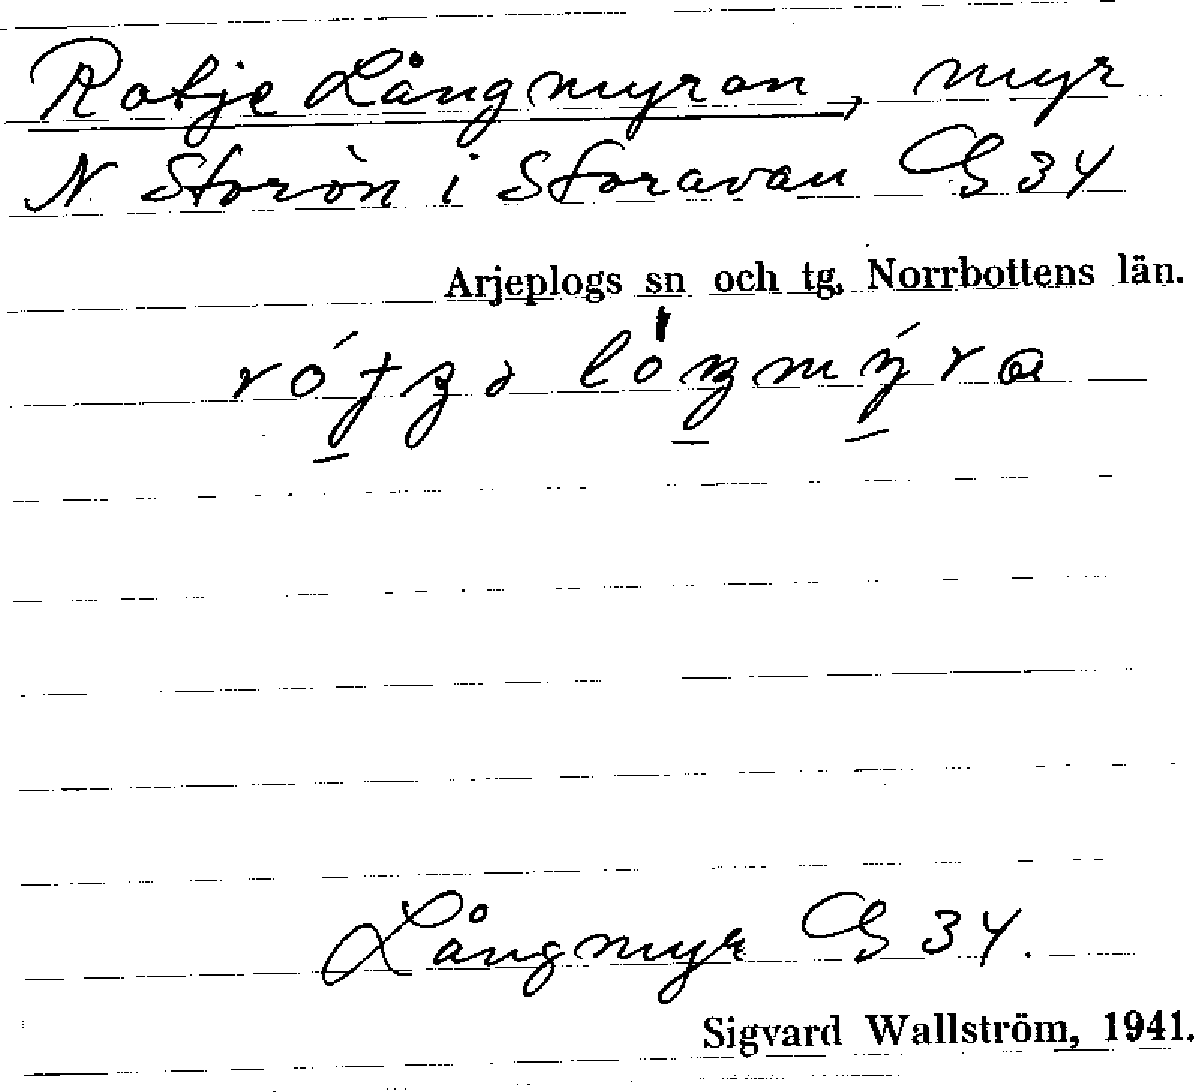 Ratje Långmyran, myr
N Storön i Storavan GS 34
Arjeplogs sn och tg, Norrbottens län.
Långmyr GS 34.
Sigvard Wallström, 1941.